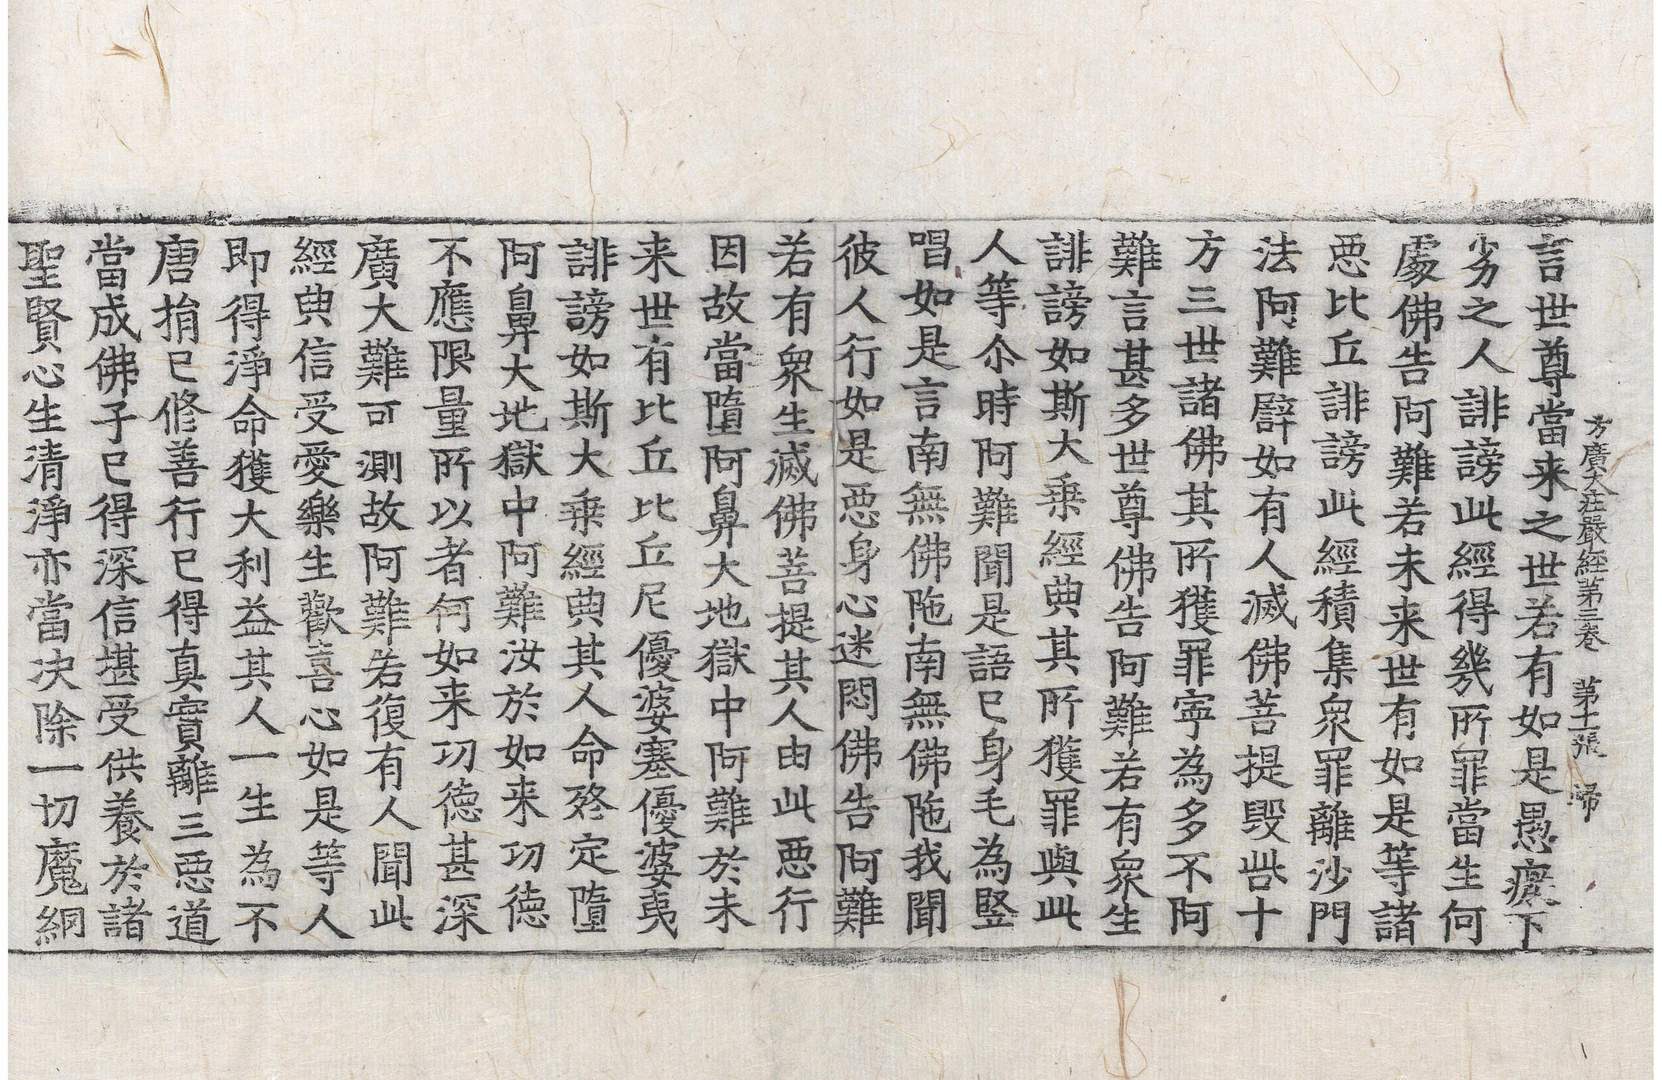 方廣大莊嚴經第三卷 第十一張 歸
言世尊當来之世若有如是愚癡下
劣之人誹謗此經得幾所罪當生何
處佛告阿難若未来世有如是等諸
惡比丘誹謗此經積集衆罪離沙門
法阿難譬如有人滅佛菩提毀呰十
方三世諸佛其所獲罪寧為多不阿
難言甚多世尊佛告阿難若有衆生
誹謗如斯大乗經典其所獲罪與此
人等尒時阿難聞是語已身毛為竪
唱如是言南無佛陁南無佛陁我聞
彼人行如是惡身心迷悶佛告阿難
若有衆生滅佛菩提其人由此惡行
因故當墮阿鼻大地獄中阿難於未
来世有比丘比丘尼優婆塞優婆夷
誹謗如斯大乗經典其人命終定墮
阿鼻大地獄中阿難汝於如来功德
不應限量所以者何如来功德甚深
廣大難可測故阿難若復有人聞此
經典信受愛樂生歡喜心如是等人
即得淨命獲大利益其人一生為不
唐捐已修善行已得真實離三惡道
當成佛子已得深信堪受供養於諸
聖賢心生清淨亦當决除一切魔網